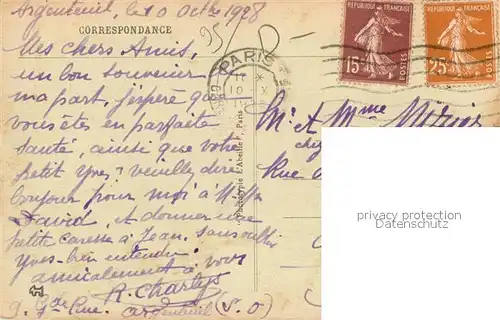 Argenteuil, le 10 Octbre 1928
CORRESPONDANCE
95/ D-
Mes chers Amis,
un bon souvenir de
ma part, j'espère que
vous êtes en parfaite
santé, ainsi que votre
petit Yves? veuillez dire
bonjour pour moi à
David, et donner une
petite caresse à Jean. sans oublier
Yves-bien entendu.
amicalement à vous
R. Charlys
9. Gde Rue. argenteuil (S.O)
PARIS
REPUBLIQUE FRANÇAISE
15c
POSTES
REPUBLIQUE FRANÇAISE
25c
POSTES
Phototypie L'Abeille, Paris
M. et Mme
chez
Rue
privacy protection
Datenschutz